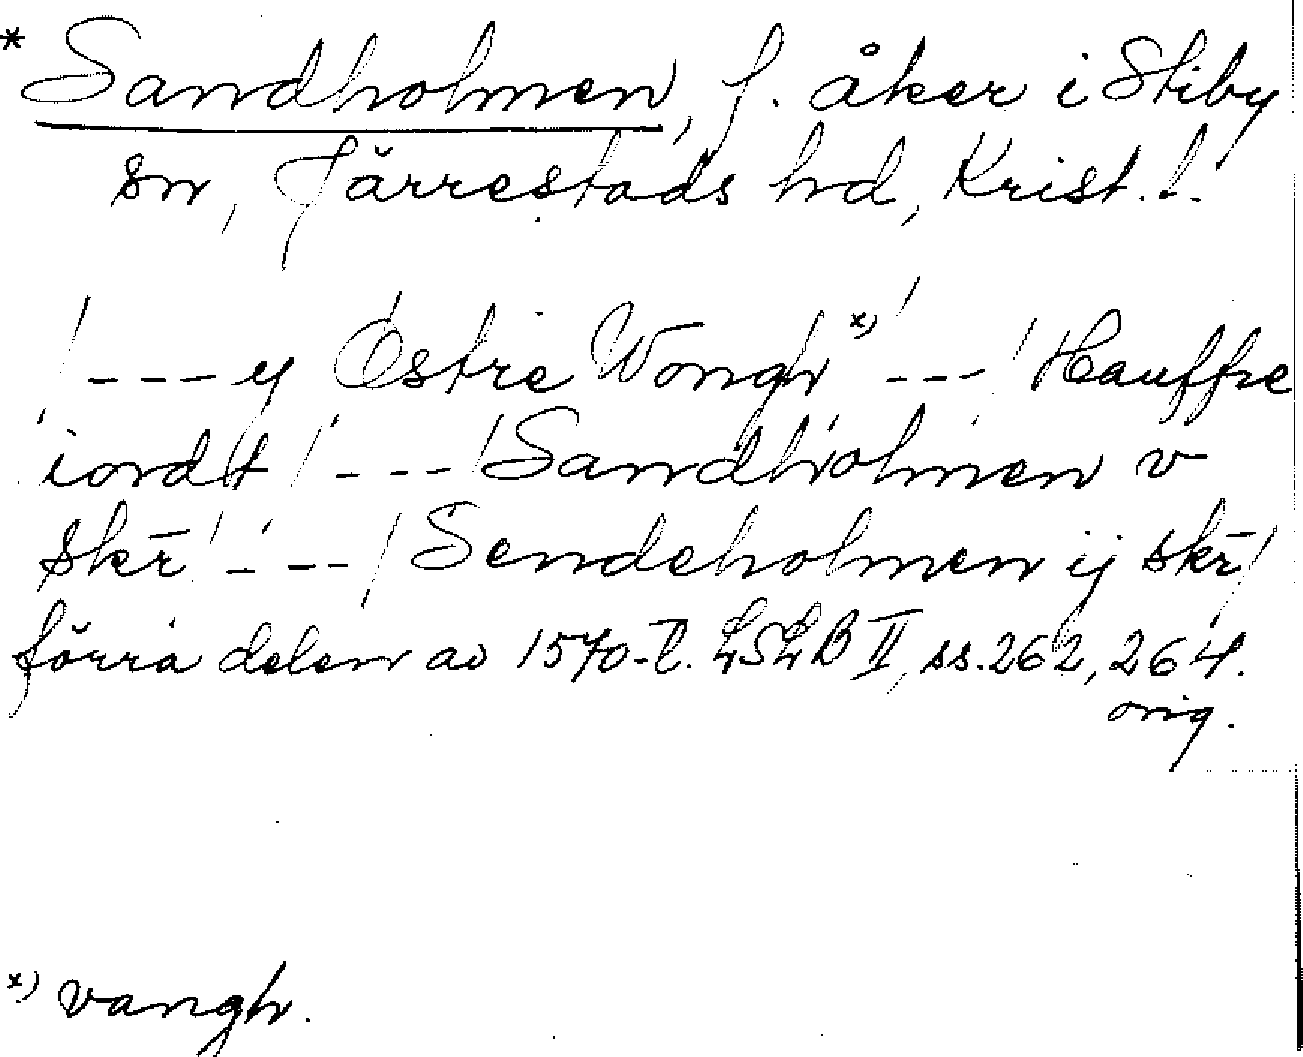 * Sandholmen, f. åker i Stiby
sn, Järrestads hd, Krist. l.
/---y Östre Wongh x) ---/ Hauffre
iordt /---/ Sandholmen v
skr̄ /---/ Sendeholmen ij skr̄/
förra delen av 1570-t. LSLB II, ss. 262, 264.
orig.
x) vangh.